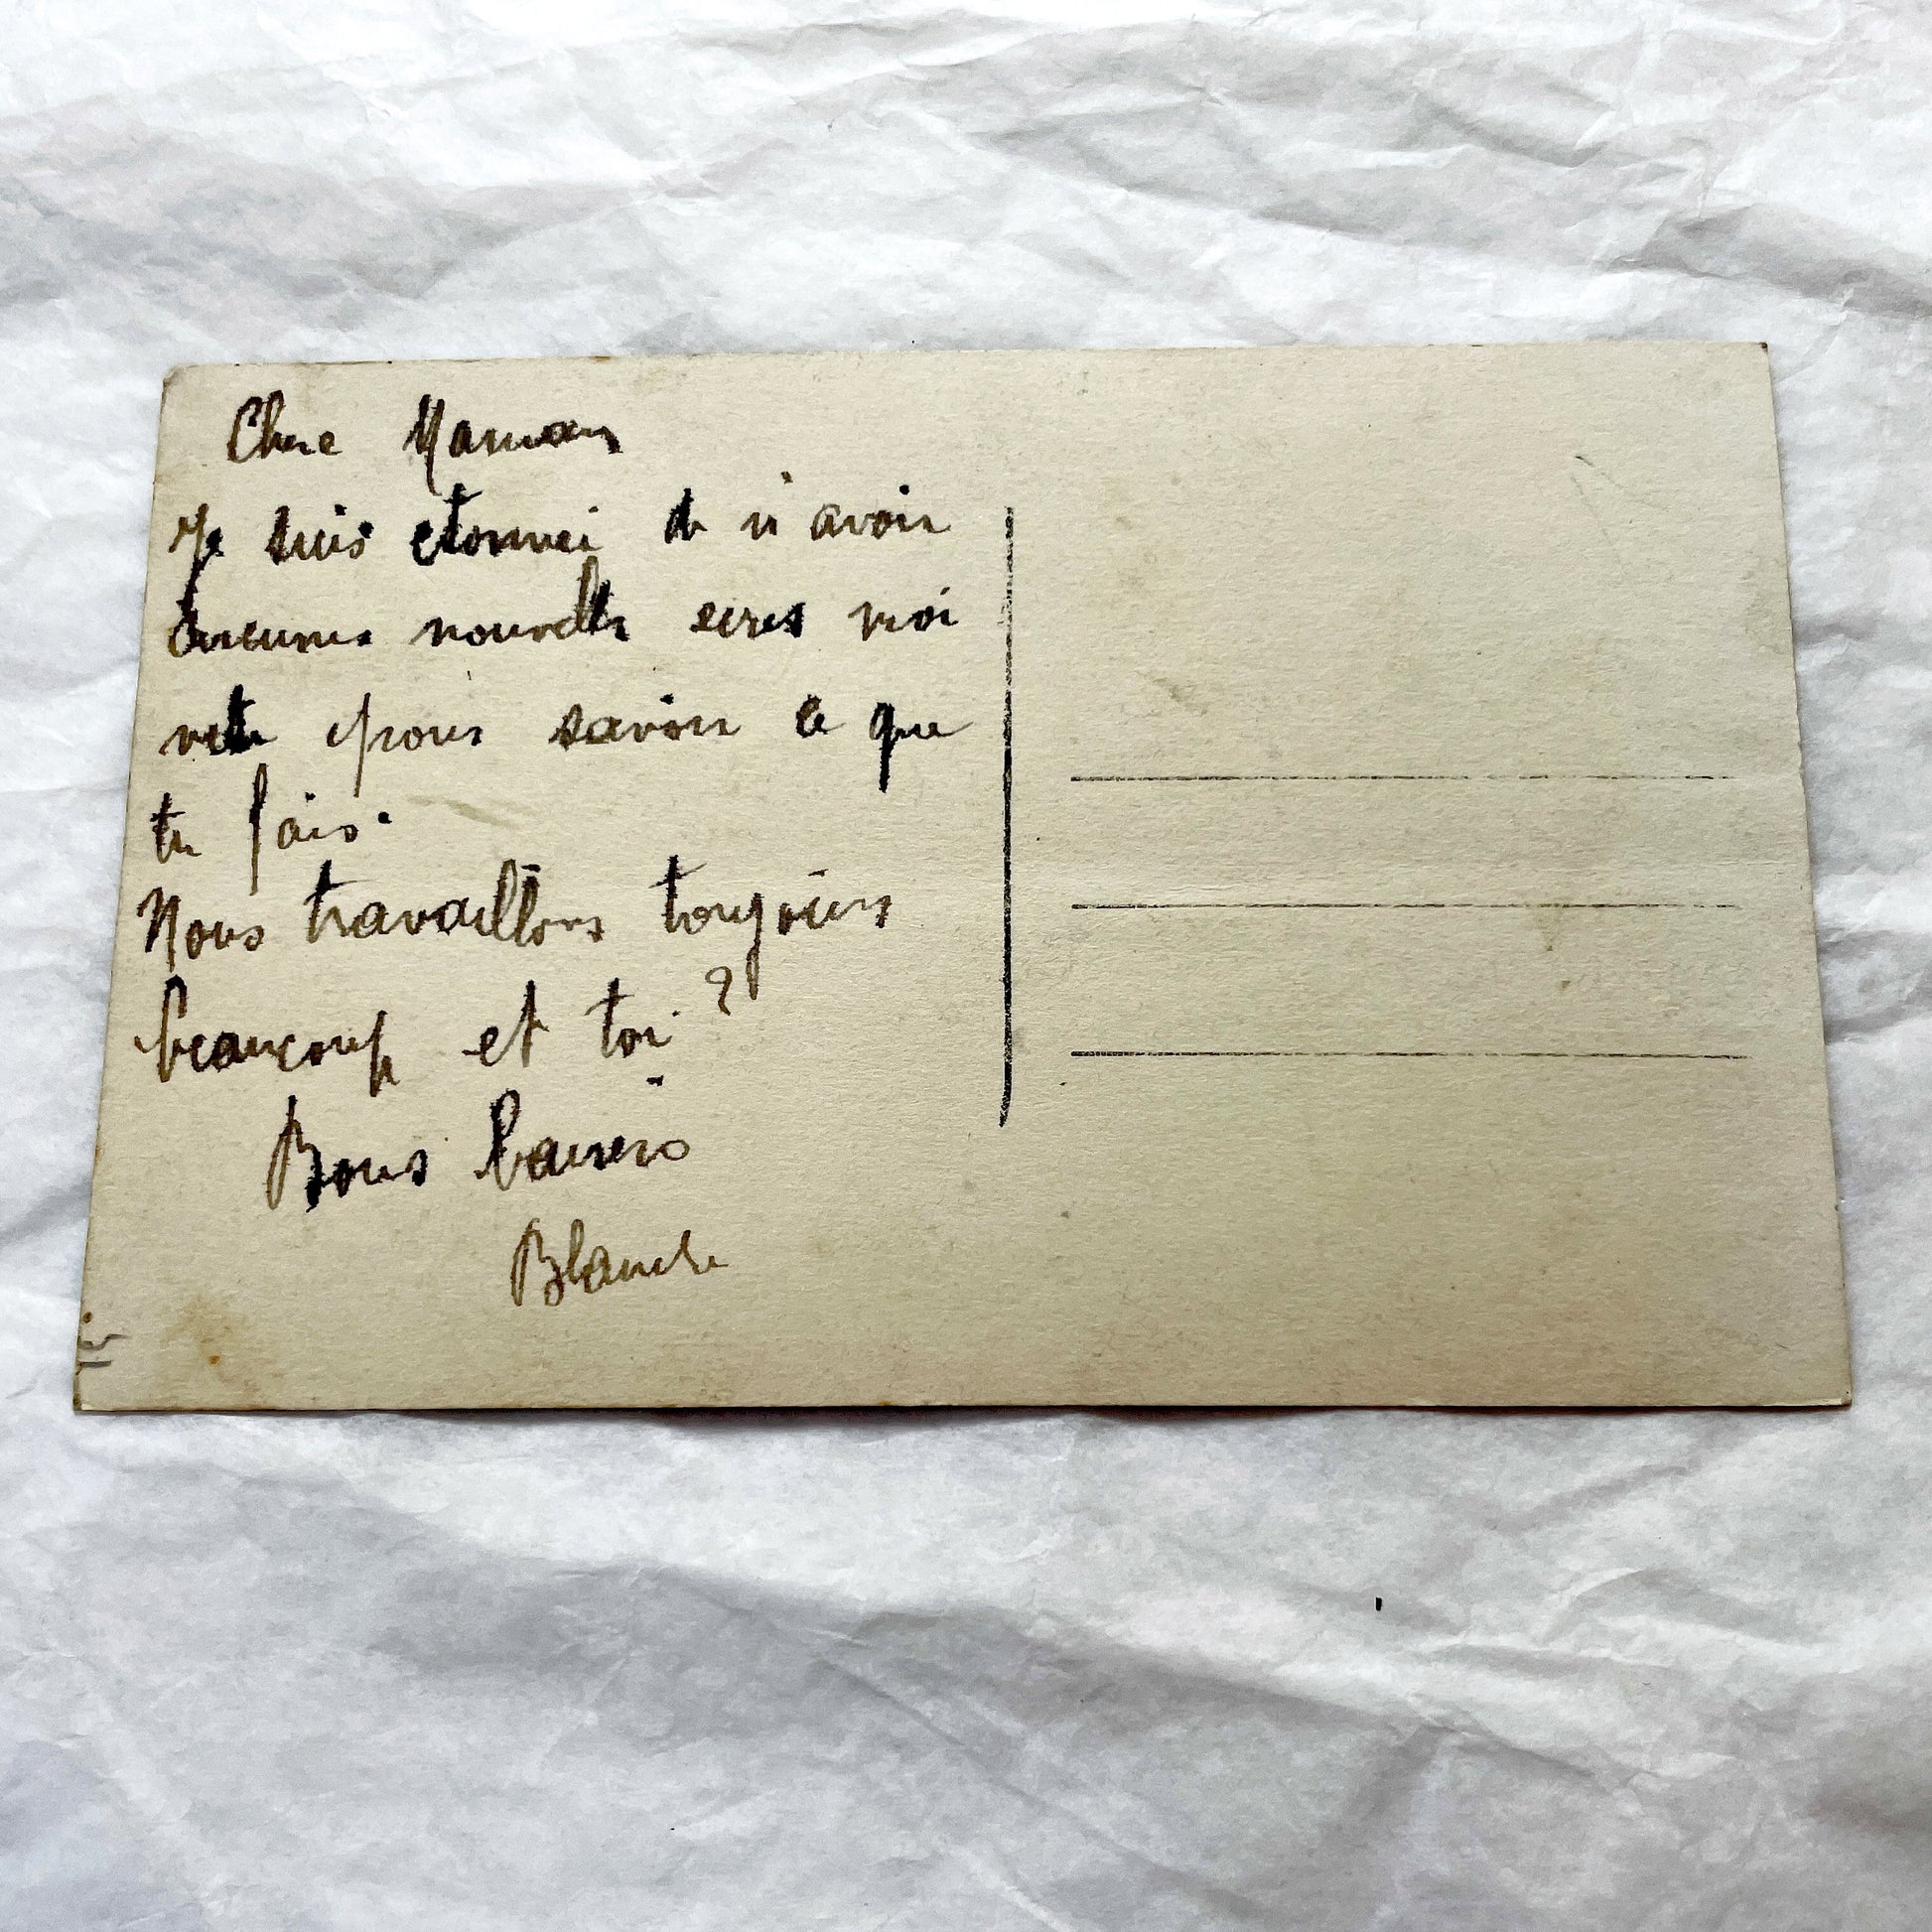 Chere Maman
Je suis etonnei de n'avoir
aucune nouvelle ecres moi
vite pour savoir ce que
tu fais.
Nous travaillons toujours
beaucoup et toi ?
Bons baisers
Blanche